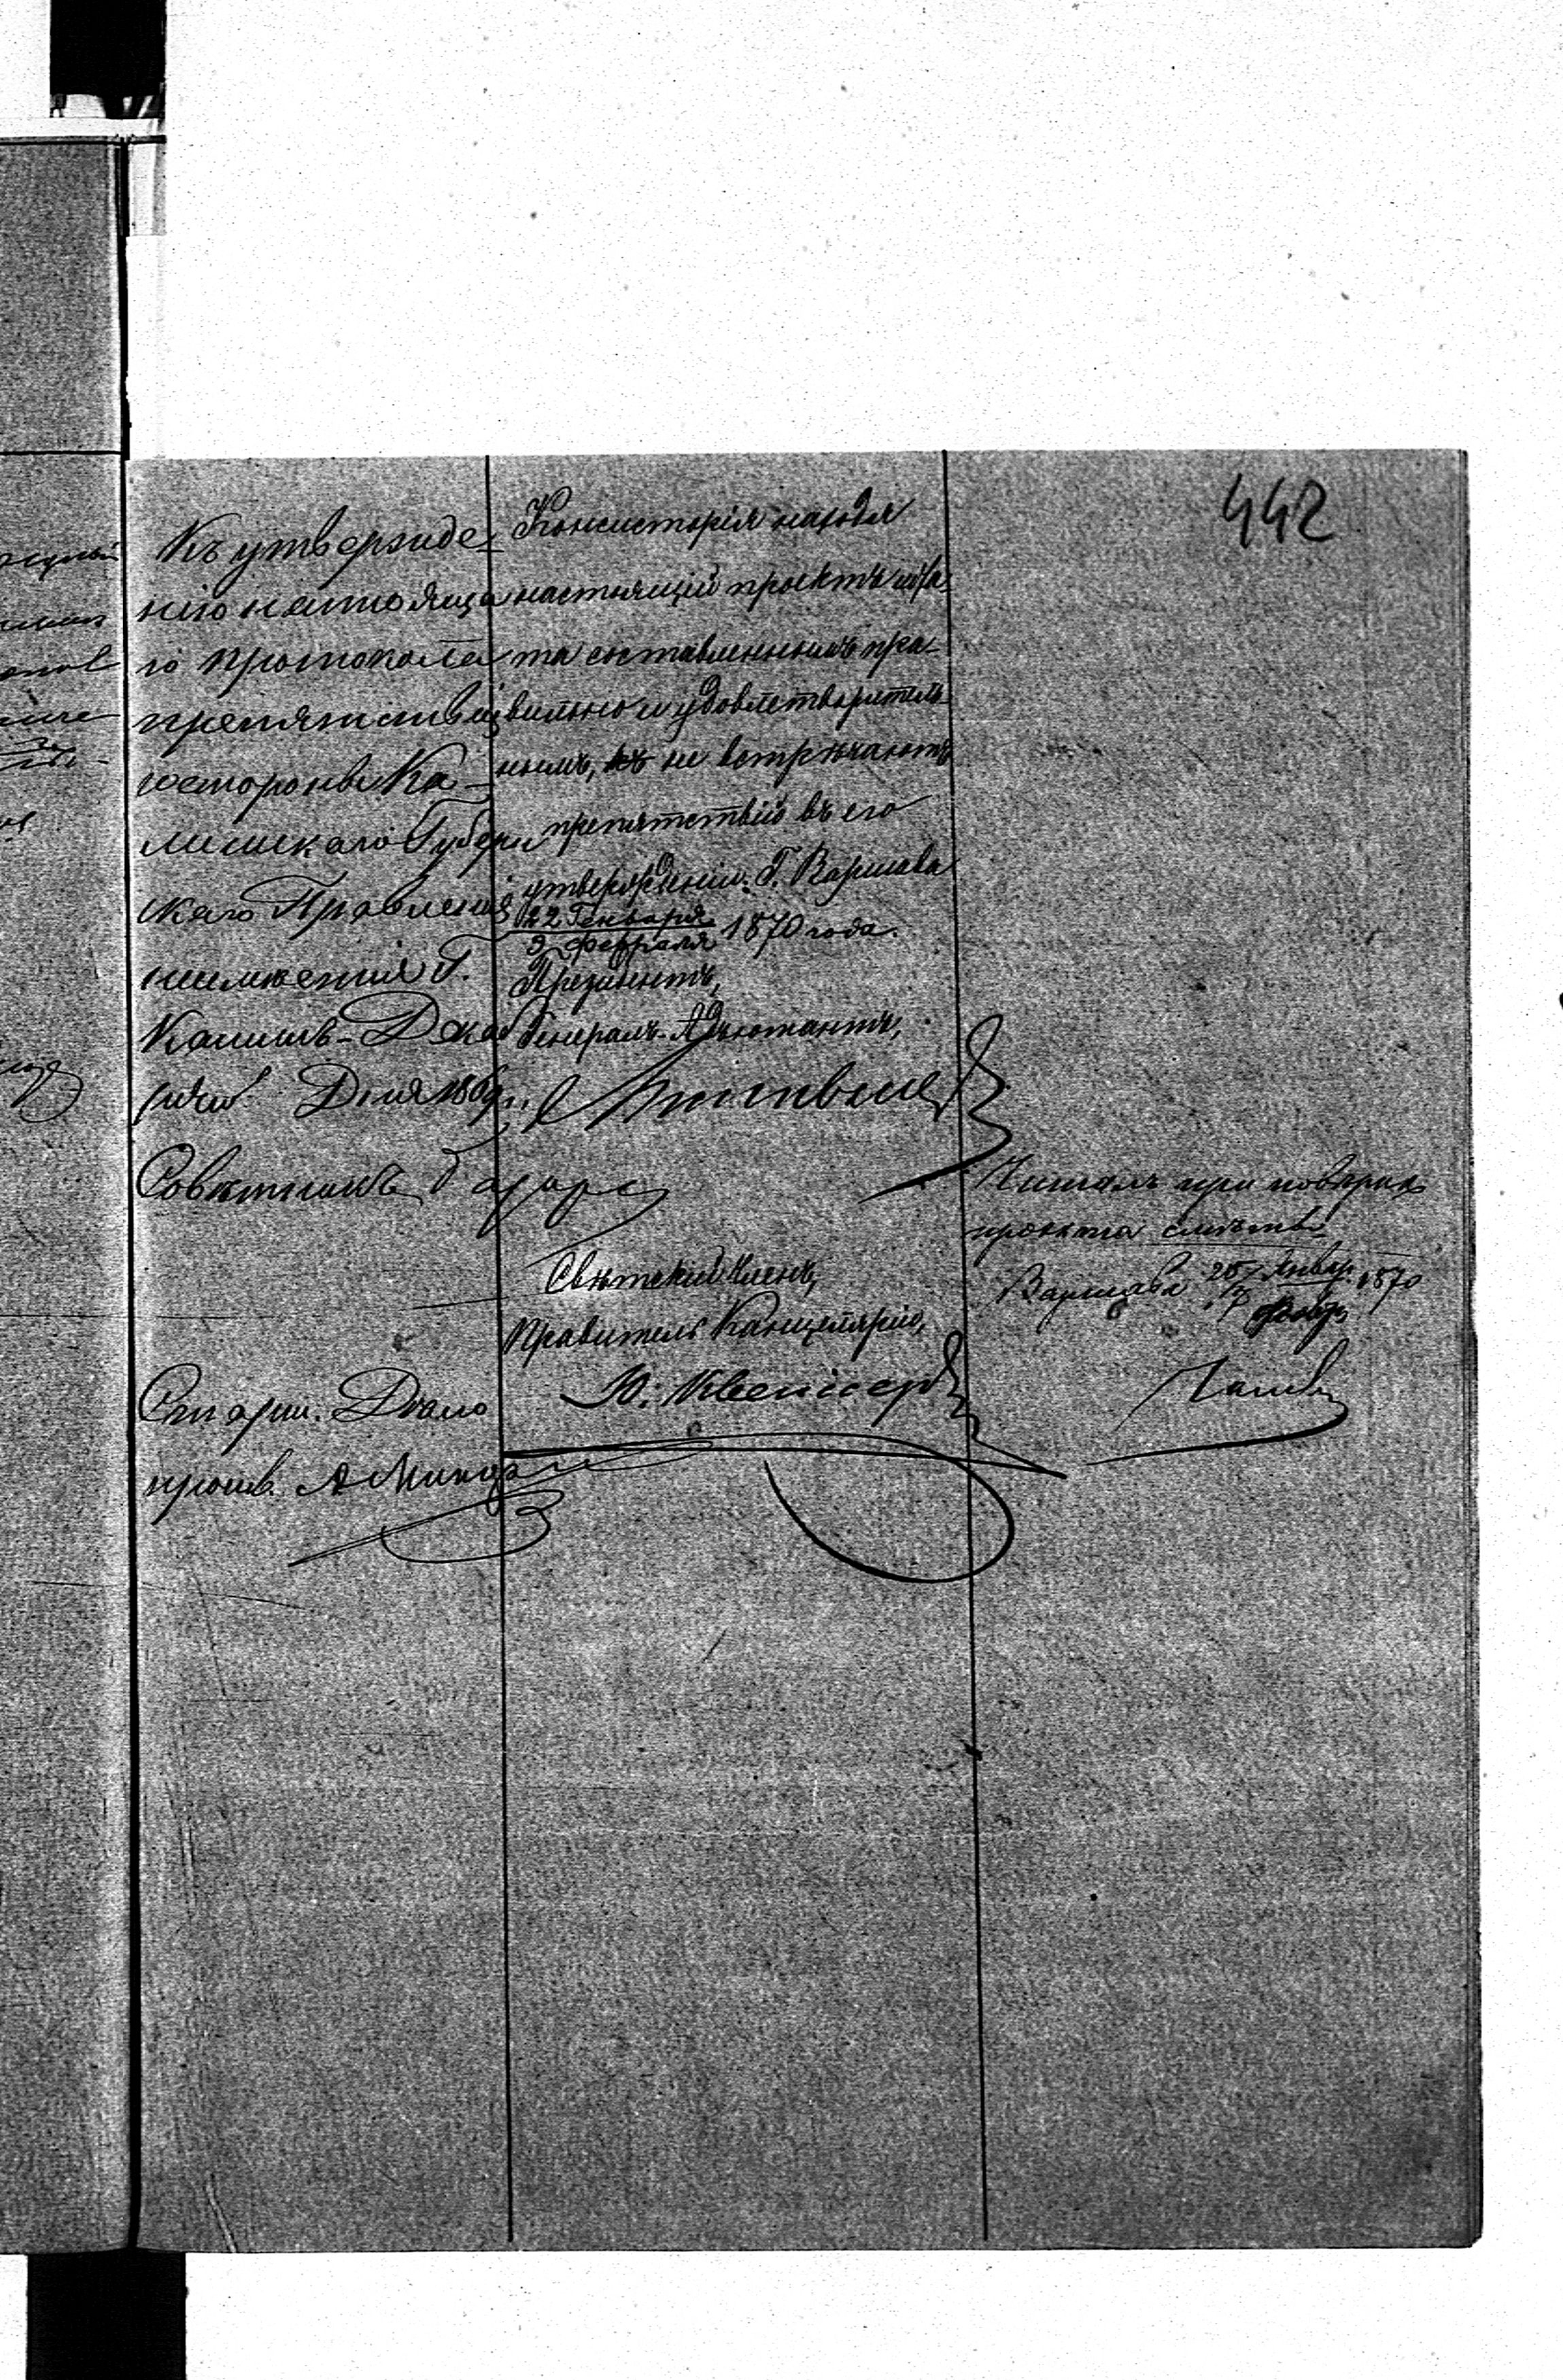 442
Къ утвержде-
нію настояща
го протокола
препятствій
со стороны Ка-
лишскаго Губерн
скаго Правленія
неимѣется Г.
Калишъ- Декаб
Дня 1869 г.
Совѣтникъ
Старш. Дѣло
произв.
Консисторія найдя
настоящій проектъ шта-
та составленнымъ пра-
вильно и удовлетворитель-
нымъ, не встрѣчаютъ
препятствій въ его
утвержденіи. Г. Варшава
22 Генваря
3 Февраля 1870 года.
Президентъ,
Генералъ-Адъютантъ,
Свѣтскій Членъ,
Правитель Канцеляріи,
Ю:
Читалъ при повѣркѣ
проекта смѣты
Варшава Январ. 1870
Февр.